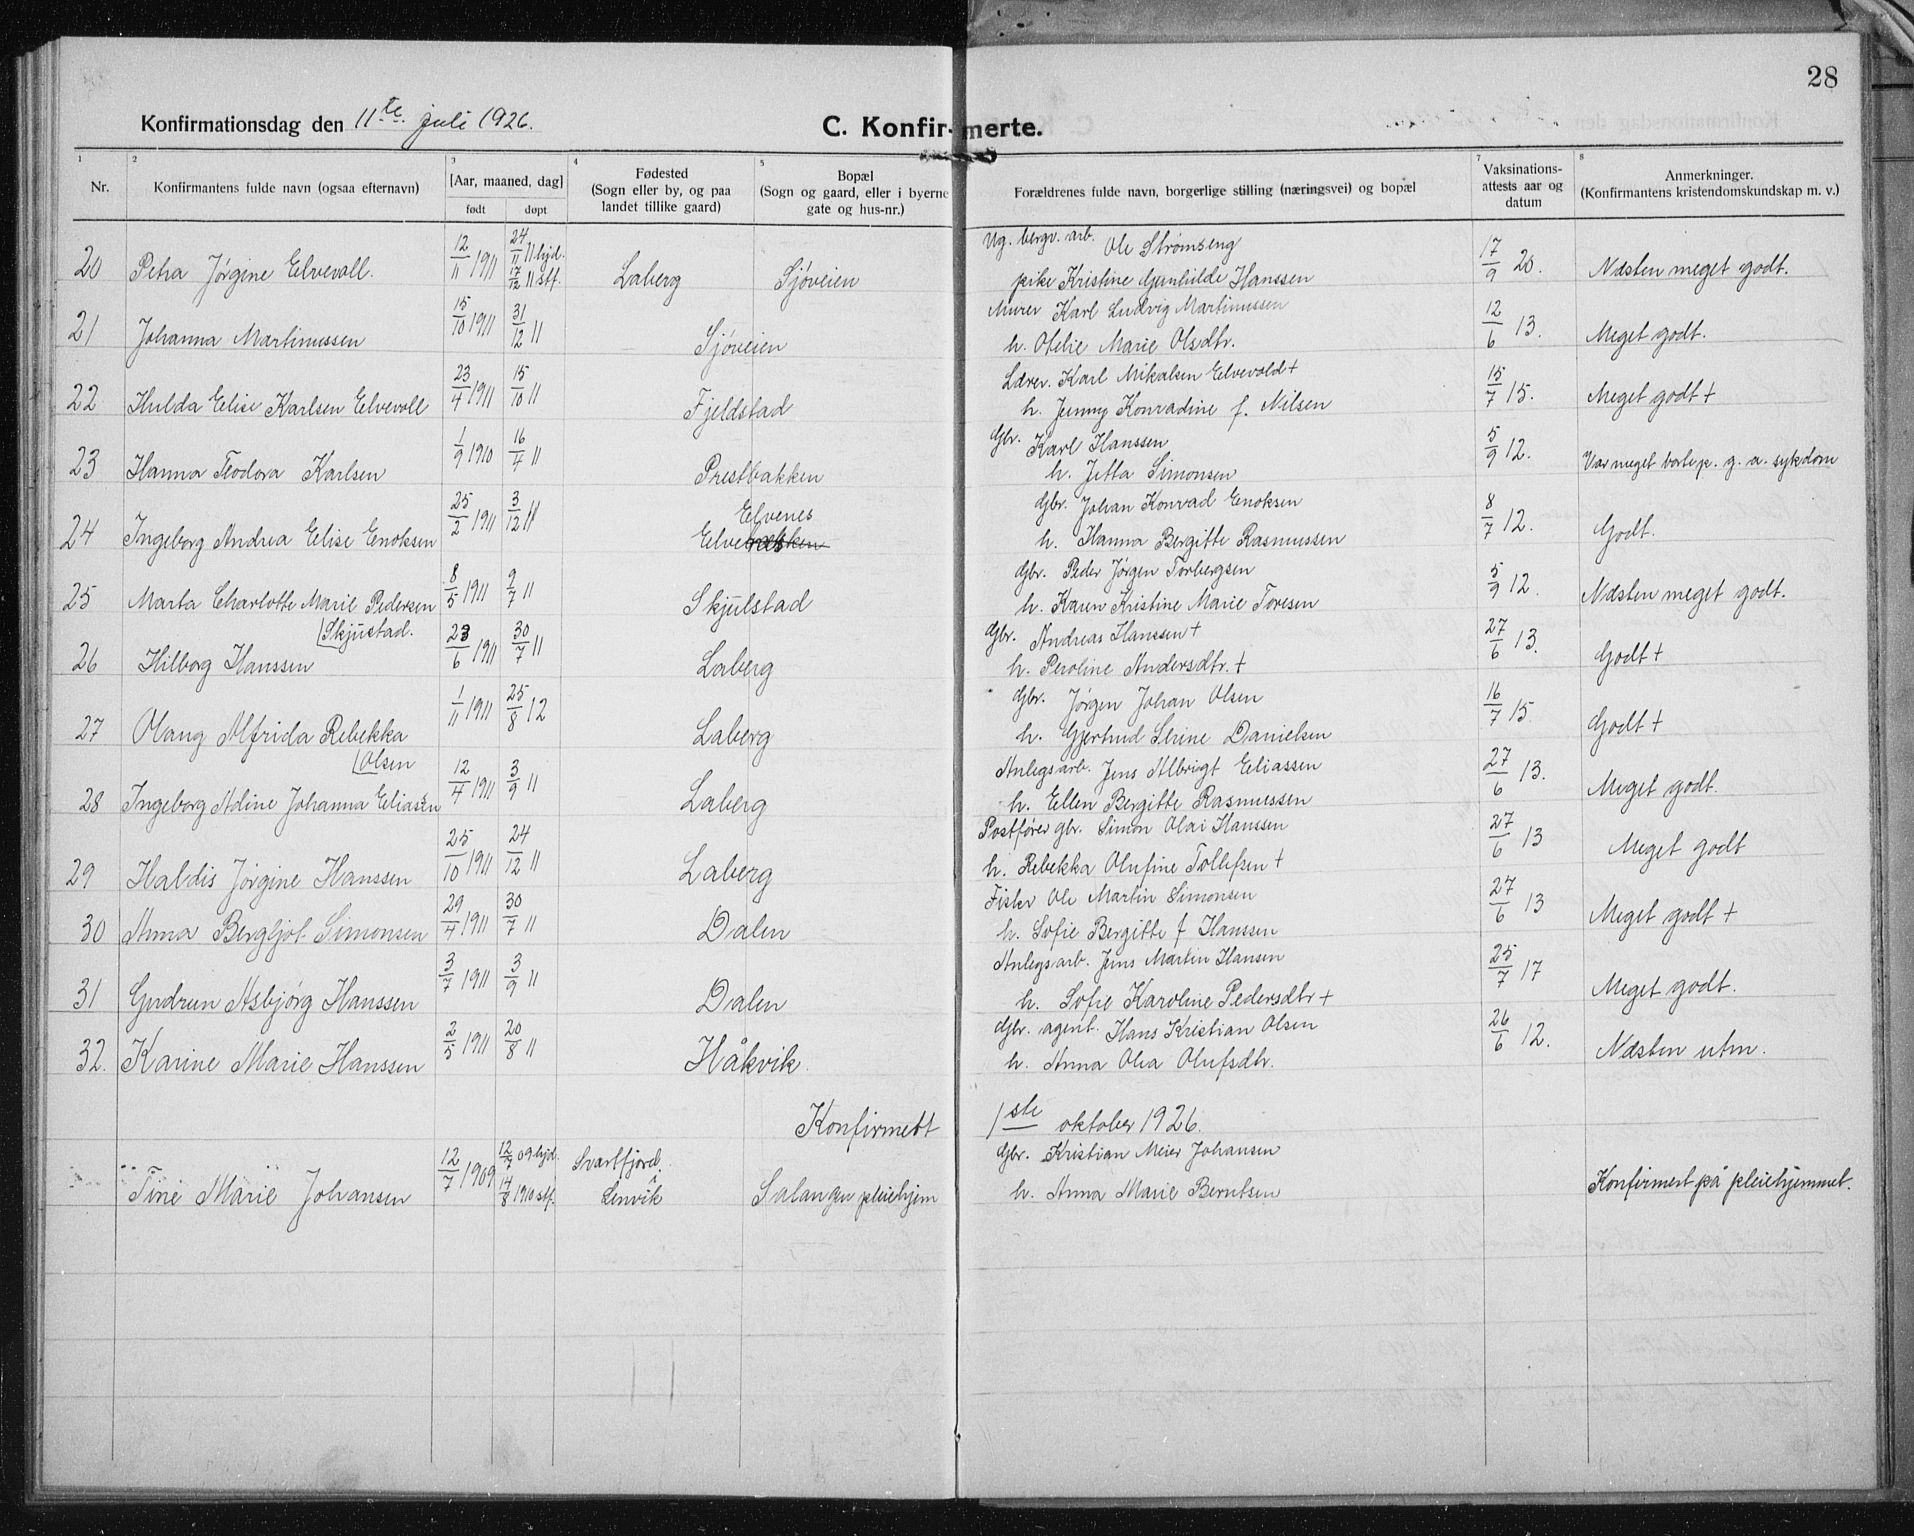 28
Konfirmationsdag den 11te juli 1926.
C. Konfirmerte.
1 2 3 4 5 7 8
Nr. Konfirmantens fulde navn (ogsaa efternavn) [Aar, maaned, dag] født døpt Fødested (Sogn eller by, og paa landet tillike gaard) Bopæl (Sogn og gaard, eller i byerne gate og hus-nr.) Forældrenes fulde navn, borgerlige stilling (næringsvei) og bopæl Vaksinations-attests aar og datum Anmerkninger. (Konfirmantens kristendomskundskap m. v.)
Ug. bergv. arb. Ole Strømseng
20 Petra Jørgine Elvevoll. 12/11 1911 24/11 11 hjd. 17/12 11 stf. Laberg Sjøveien pike Kristine Gunhilde Hanssen 17/9 20. Næsten meget godt.
Murer Karl Ludvig Martinussen
21 Johanna Martinussen 15/10 1911 31/12 11 Sjøveien h. Otelie Marie Olsdtr. 12/6 13. Meget godt.
Lærer. Karl Mikalsen Elvevold +
22 Hulda Elise Karlsen Elvevoll 23/4 1911 15/10 11 Fjeldstad h. Jenny Konradine f. Nilsen 15/7 15. Meget godt +
Gbr. Karl Hanssen
23 Hanna Teodora Karlsen 1/9 1910 16/4 11 Prestbakken h. Jetta Simonsen 5/9 12. Var meget borte p. g. a. sykdom
Elvenes Gbr. Johan Konrad Enoksen
24 Ingeborg Andrea Elise Enoksen 25/2 1911 3/12 11 h. Hanna Bergitte Rasmussen 8/7 12. Godt.
Gbr. Peder Jørgen Torbergsen
25 Marta Charlotte Marie Pedersen 8/5 1911 9/7 11 Skjulstad h. Karen Kristine Marie Toresen 5/9 12. Næsten meget godt.
Skjustad. Gbr. Andreas Hanssen +
26 Hilborg Hanssen 23/6 1911 30/7 11 Laberg h. Peroline Andersdtr. + 27/6 13. Godt +
Gbr. Jørgen Johan Olsen
27 Olaug Alfrida Rebekka 1/11 1911 25/8 12 Laberg h. Gjertrud Serine Danielsen 16/7 15 Godt +
Olsen Anlegsarb. Jens Albrigt Eliassen
28 Ingeborg Adine Johanna Eliasen 12/4 1911 3/9 11 Laberg h. Ellen Bergitte Rasmussen 27/6 13. Meget godt.
Postfører gbr. Simon Olai Hanssen
29 Haldis Jørgine Hanssen 25/10 1911 24/12 11 Laberg h. Rebekka Olufine Tollefsen + 27/6 13 Meget godt
Fisker Ole Martin Simonsen
30 Anna Bergljot Simonsen 29/4 1911 30/7 11 Dalen h. Sofie Bergitte f Hanssen 27/6 13 Meget godt +
Anlegsarb. Jens Martin Hansen
31 Gudrun Asbjørg Hanssen 3/7 1911 3/9 11 Dalen h. Sofie Karoline Pedersdtr + 25/7 17 Meget godt.
Gbr. agent. Hans Kristian Olsen
32. Karine Marie Hanssen 2/5 1911 20/8 11 Håkvik. h. Anna Olea Olufsdtr. 26/6 12. Næsten utm.
Konfirmert 1ste oktober 1926.
12/7 09 hjd. Svartfjord. Gbr. Kristian Meier Johansen
Tine Marie Johansen 12/7 1909 14/8 1910 stf. Lenvik Salangen pleiehjem h. Anna Marie Berntsen Konfirmert på pleiehjemmet.